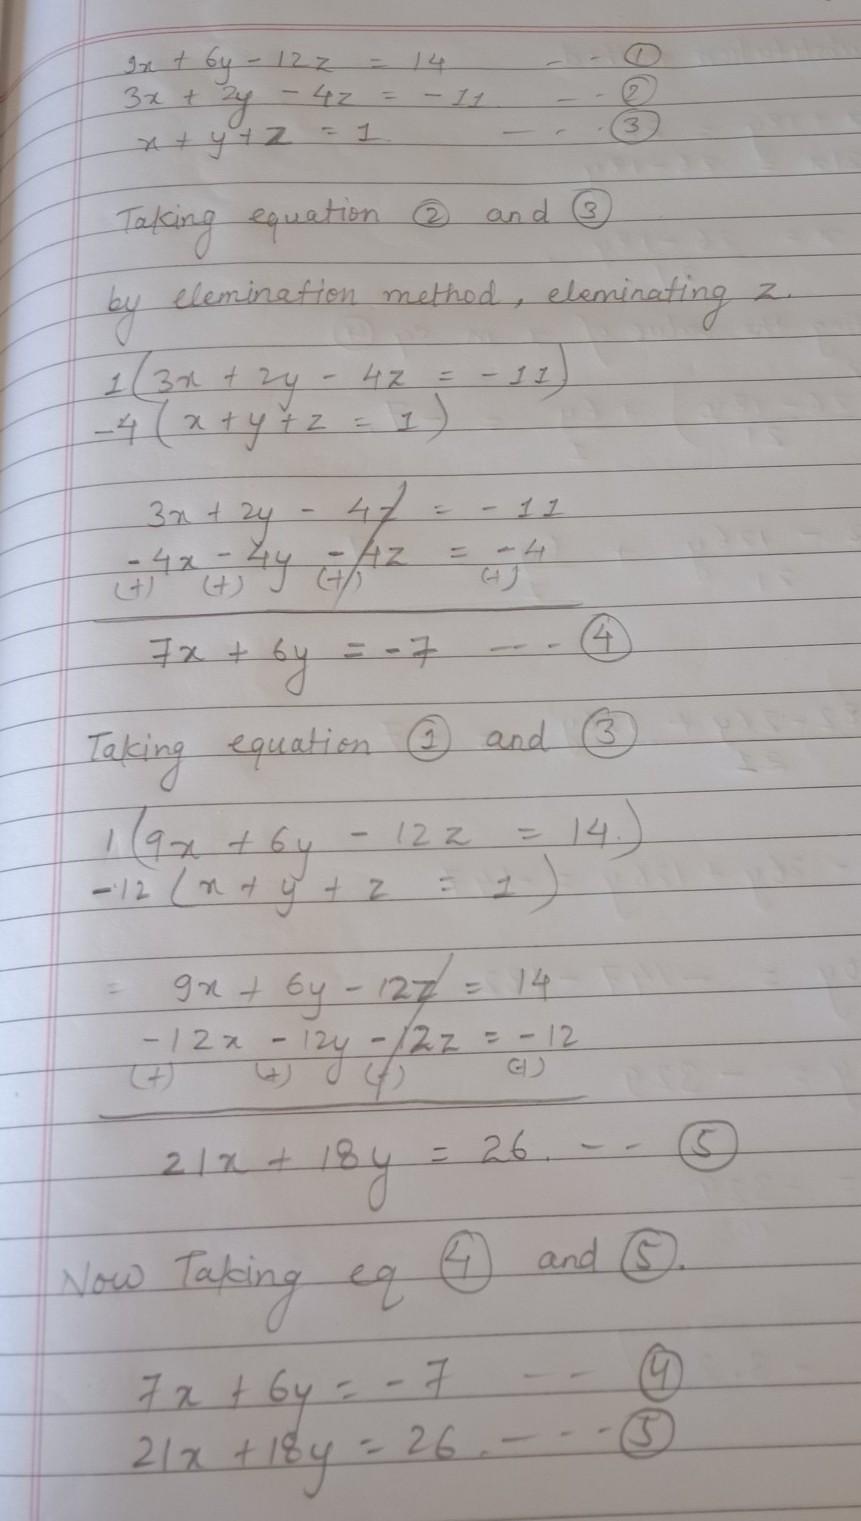 9x + 6y - 12z = 14 - - ①
3x + 2y - 4z = - 11 - - - ②
x + y + z = 1 - - - ③
Taking equation ② and ③
by elemination method, eleminating z.
1(3x + 2y - 4z = - 11)
-4(x + y + z = 1)
3x + 2y - 4z = - 11
-4x - 4y - 4z = - 4
(+) (+) (+) (+)
7x + 6y = - 7 --- - ④
Taking equation ① and ③
1(9x + 6y - 12z = 14.)
-12(x + y + z = 1)
= 9x + 6y - 12z = 14
-12x - 12y - 12z = - 12
(+) (+) (+) (+)
21x + 18y = 26. - - - ⑤
Now Taking eq ④ and ⑤.
7x + 6y = - 7 - - - ④
21x + 18y = 26. - - - - ⑤